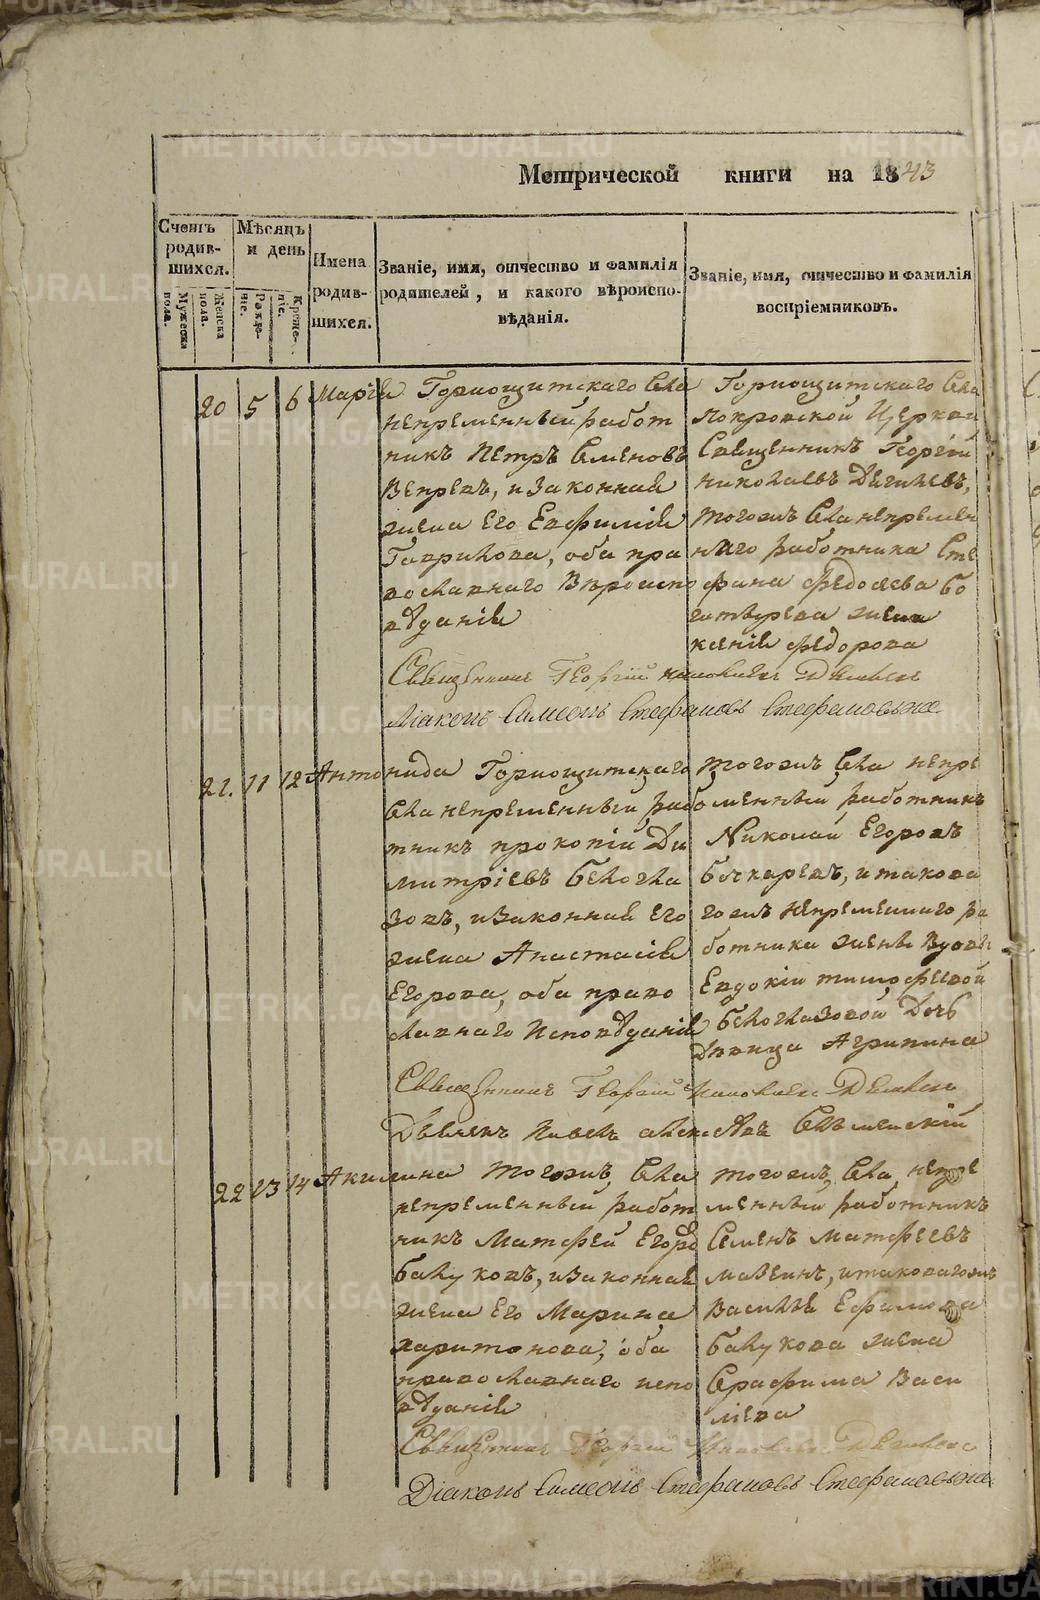 Метрической книги на 1843
Счетъ родив- шихся.
Мужеска пола.
Женска пола.
Мѣсяцъ и день
Рожде- ніе.
Креще- ніе.
Имена родив- шихся.
Званіе, имя, отчество и фамилія
родителей, и какого вѣроиспо-
вѣданія.
Званіе, имя, отчество и фамилія
воспріемниковъ.
20 5 6 Маріѧ
Горнощитскаго Села
непременный работ
никъ Петръ Семеновъ
Вепревъ, и законная
жена Его Евфимія
Гаврилова, оба пра
вославнаго Вѣроиспо
вѣданія
Горнощитскаго Села
Покровской Церкви
Священникъ Георгій
Николаевъ
тогожъ Села непремен
наго работника Сте
фана Федосѣева Бо
гатырева жена
Ксенія Федорова
Священникъ Георгій Николаевъ
Діаконъ Симеонъ Стефановъ
21. 11 12 Антонида
Горнощитскаго
Села непременный рабо
тникъ Прокопій Ди
митріевъ Белогла
зовъ, и законная Его
жена Анастасія
Егорова, оба право
славнаго Исповѣданія
тогожъ Села непре
менный работникъ
Николай Егоровъ
Бочкаревъ, и такова
гожъ непременнаго ра
ботника жены Вдовы
Евдокіи Тимофѣевой
Белоглазовой Дочь
Дѣвица Агрипина
Священникъ Георгій Николаевъ
Дьячекъ Павелъ
22 13 14 Акилина
тогожъ Села
непременный работ
никъ Матфей Егоро
Балуковъ, и законная
жена Его Марина
Харитонова, оба
православнаго испо
вѣданія
тогожъ Села непре
менный работникъ
Семенъ Матфеевъ
Мазеинъ, и таковагожъ
Василья Ефимова
Балукова жена
Серафима Васи
льева
Священникъ Георгій Николаевъ
Діаконъ Симеонъ Стефановъ
METRIKI.GASO-URAL.RU